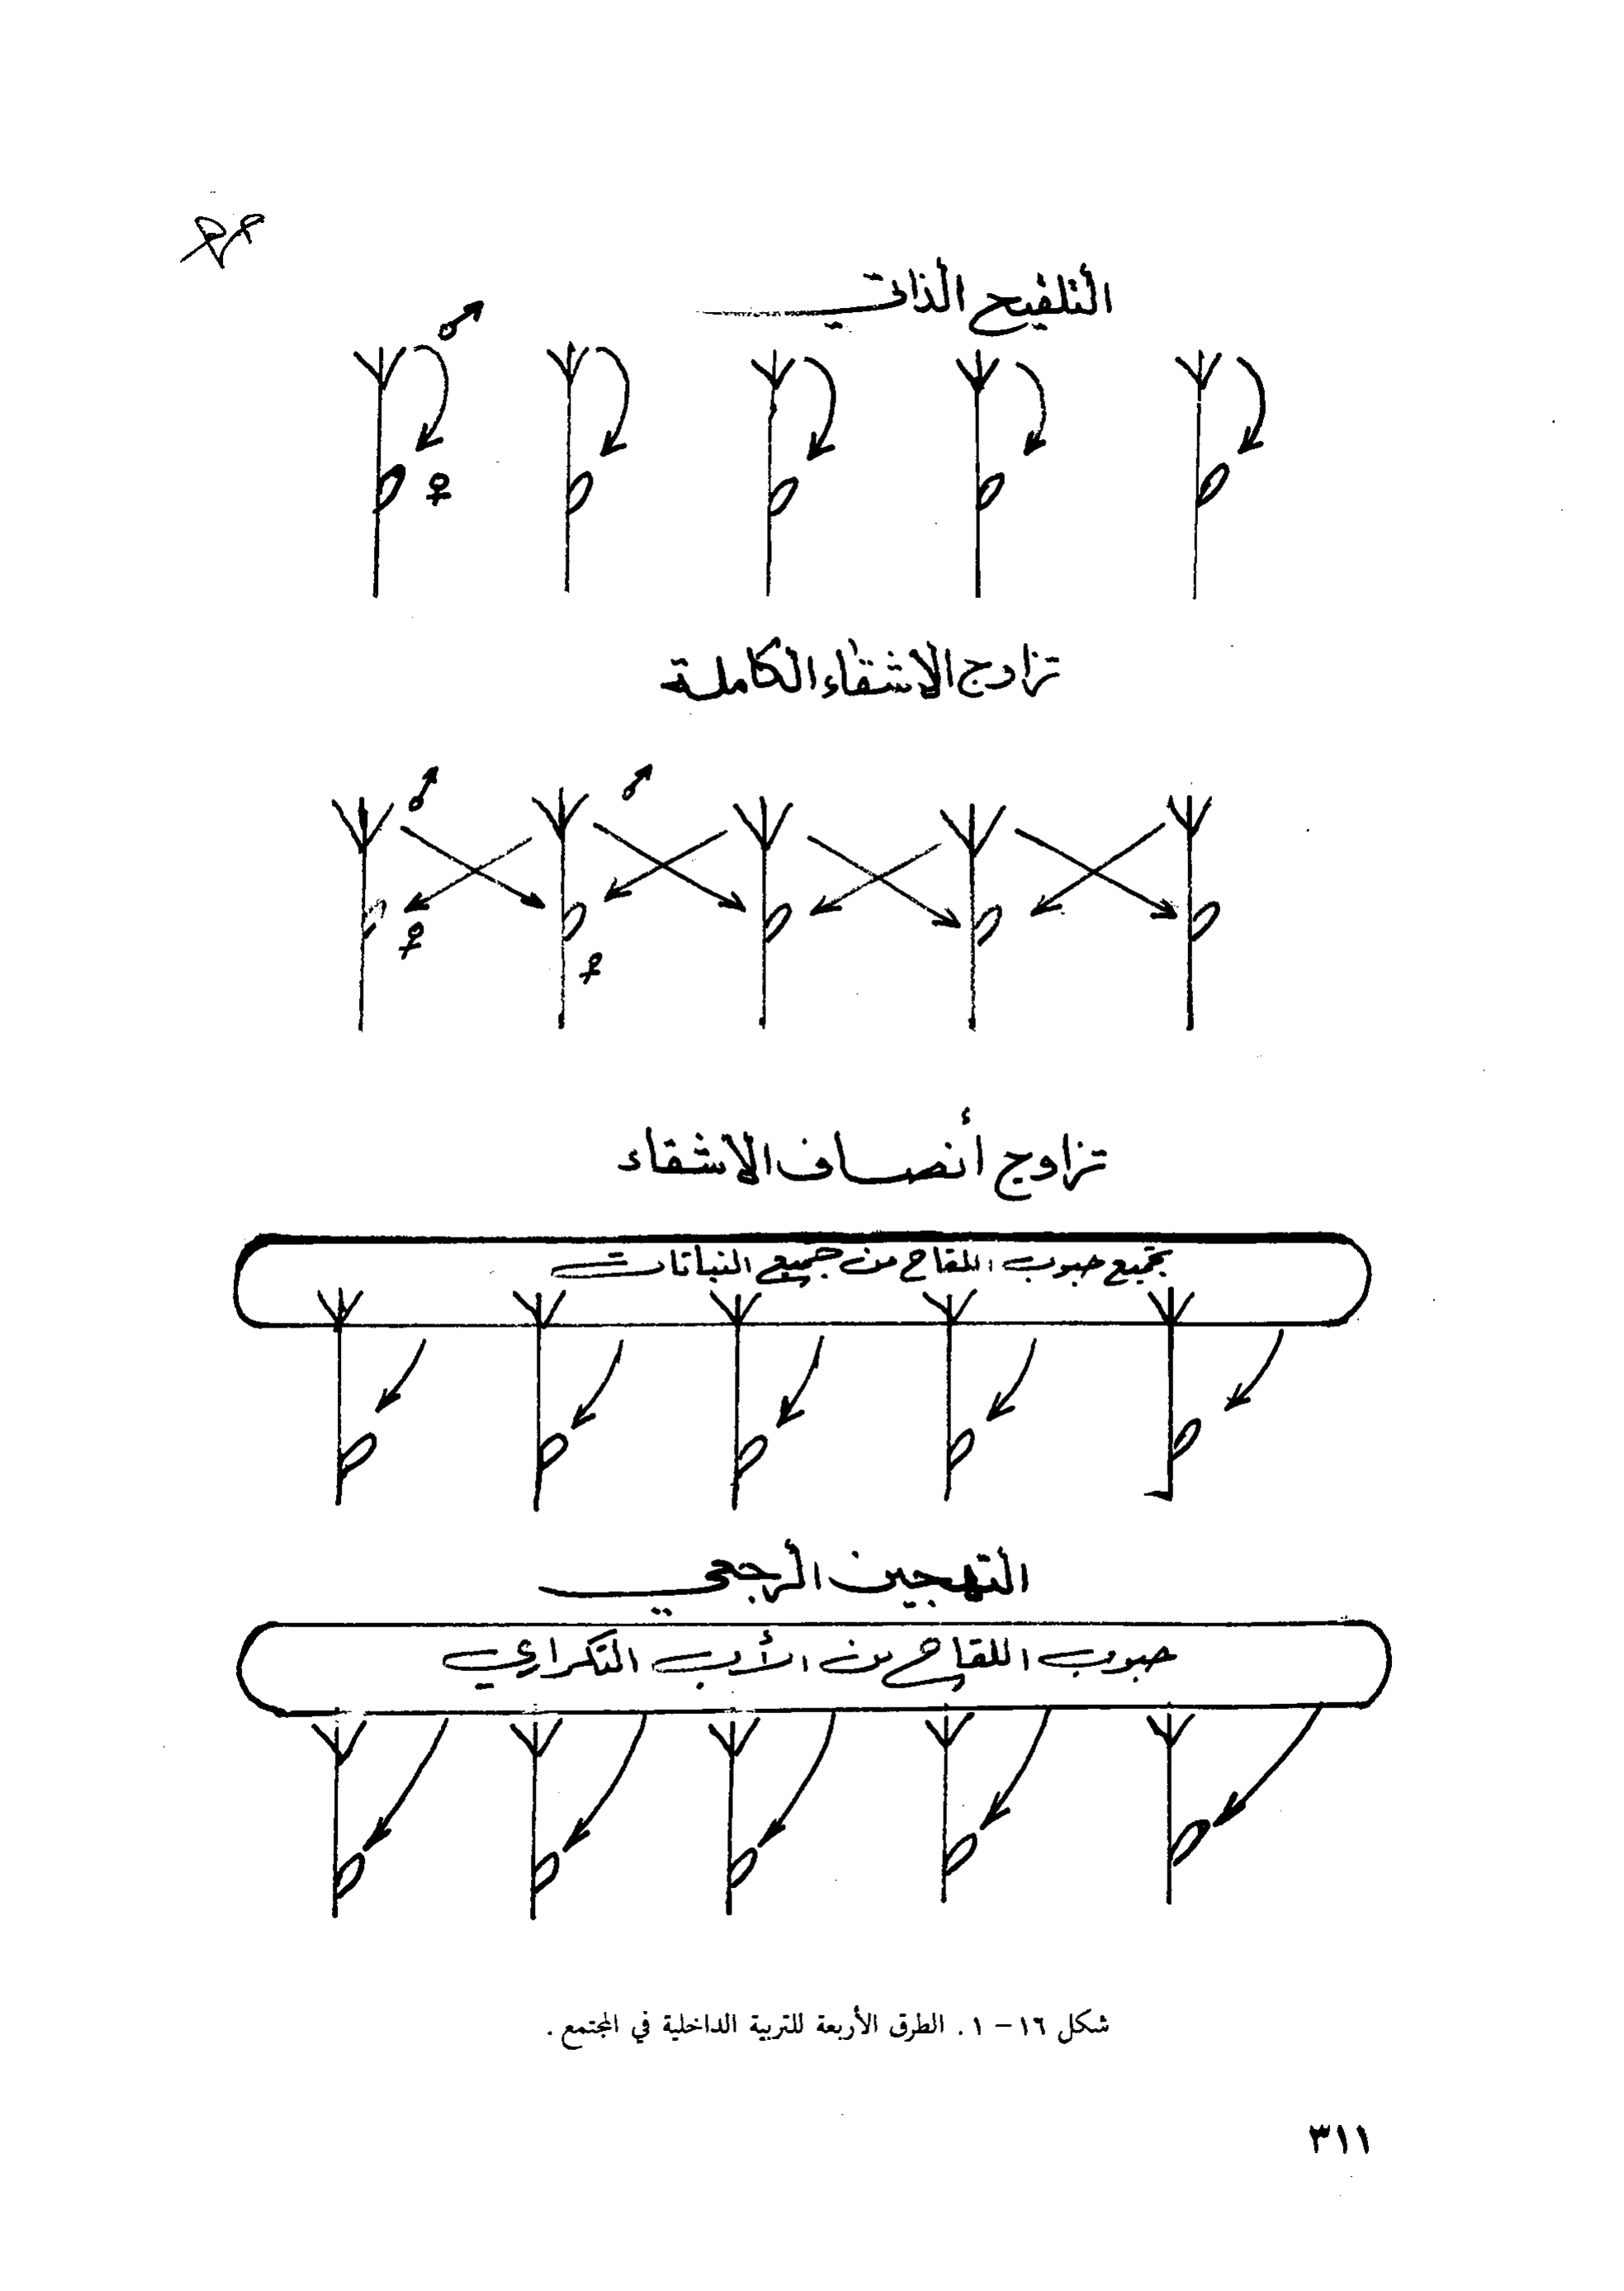 التلقيح الذاتي
♂
♀
تزاوج الاشقاء الكاملة
♂ ♂
♀ ♀
تزاوج أنصاف الاشقاء
تجميع حبوب اللقاح من جميع النباتات
التهجين الرجعي
حبوب اللقاح من الأب التكراري
شكل ١٦ – ١ . الطرق الأربعة للتربية الداخلية في المجتمع .
٣١١